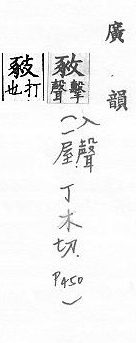 廣韻
(入聲
一屋 丁木切. P450)
擊聲
打也